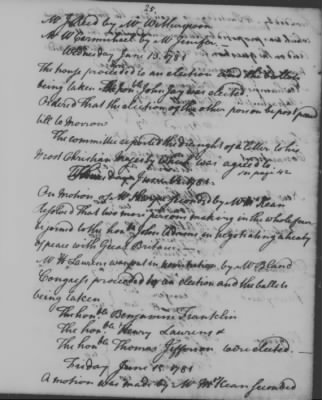 25.
Mr J Reed by Mr Witherspoon
Mr W Carmichael by Mr Jenifer.
Wednesday June 13. 1781
The house proceeded to an election and the ballots
being taken The honble John Jay was elected.
Ordered that the election of the other person be postponed
till to morrow
The committee reported the draught of a letter to his
most Christian majesty which was agreed to
in page 42
Thursday June 14. 1781.
On motion of Mr seconded by Mr McKean
Resolved that two more persons making in the whole
be joined to the honble John Adams in negotiating a treaty
of peace with Great Britain.—
Mr H Laurens was put in nomination by Mr Bland
Congress proceeded to an election and the ballots
being taken
The honble Benjamin Franklin
The honble Henry Laurens &
The honble Thomas Jefferson were elected.—
Friday June 15 1781
A motion was made by Mr McKean seconded